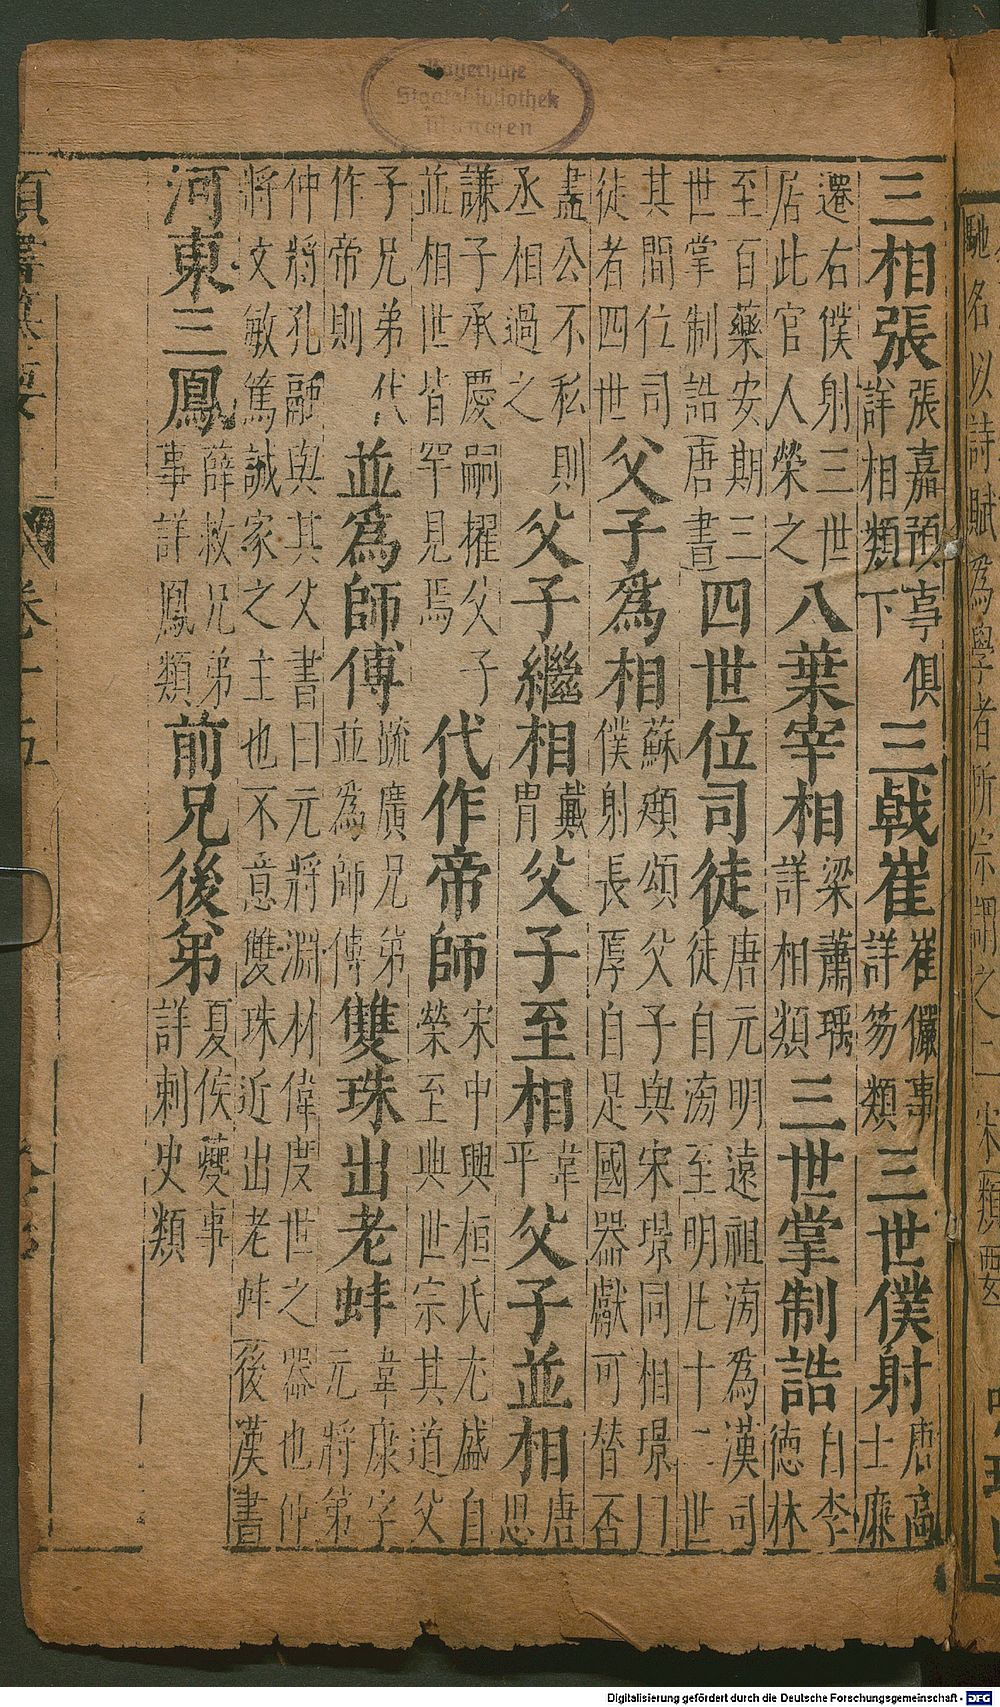 馳名以詩賦爲學者所宗謂之二宋
三相張 張嘉預事俱 詳相類下 三戟崔 崔儼事 詳笏類 三世僕射 唐高 士廉
遷右僕射三世 居此官人榮之 八葉宰相 梁蕭瑀 詳相類 三世掌制誥 自李 德林
至百藥安期三 世掌制誥唐書 四世位司徒 唐元明遠祖滂爲漢司 徒自滂至明凡十二世
其間位司 徒者四世 父子爲相 蘇頲頌父子與宋璟同相璟曰 僕射長厚自足國器獻可替否
盡公不私則 丞相過之 父子繼相 戴 胄 父子至相 韋 平 父子並相 唐 思
謙子承慶嗣擢父子 並相世皆罕見焉 代作帝師 宋中興桓氏尢盛自 榮至典世宗其道父
子兄弟代 作帝則 並爲師傅 疏廣兄弟 並爲師傅 雙珠出老蚌 韋康字 元將弟
仲將孔融與其父書曰元將淵材偉度世之器也仲 將文敏篤誠家之主也不意雙珠近出老蚌後漢書
河東三鳳 薛救兄弟 事詳鳳類 前兄後弟 夏侯夔事 詳刺史類
卷十五
Bayerische
Staatsbibliothek
München
Digitalisierung gefördert durch die Deutsche Forschungsgemeinschaft - DFG